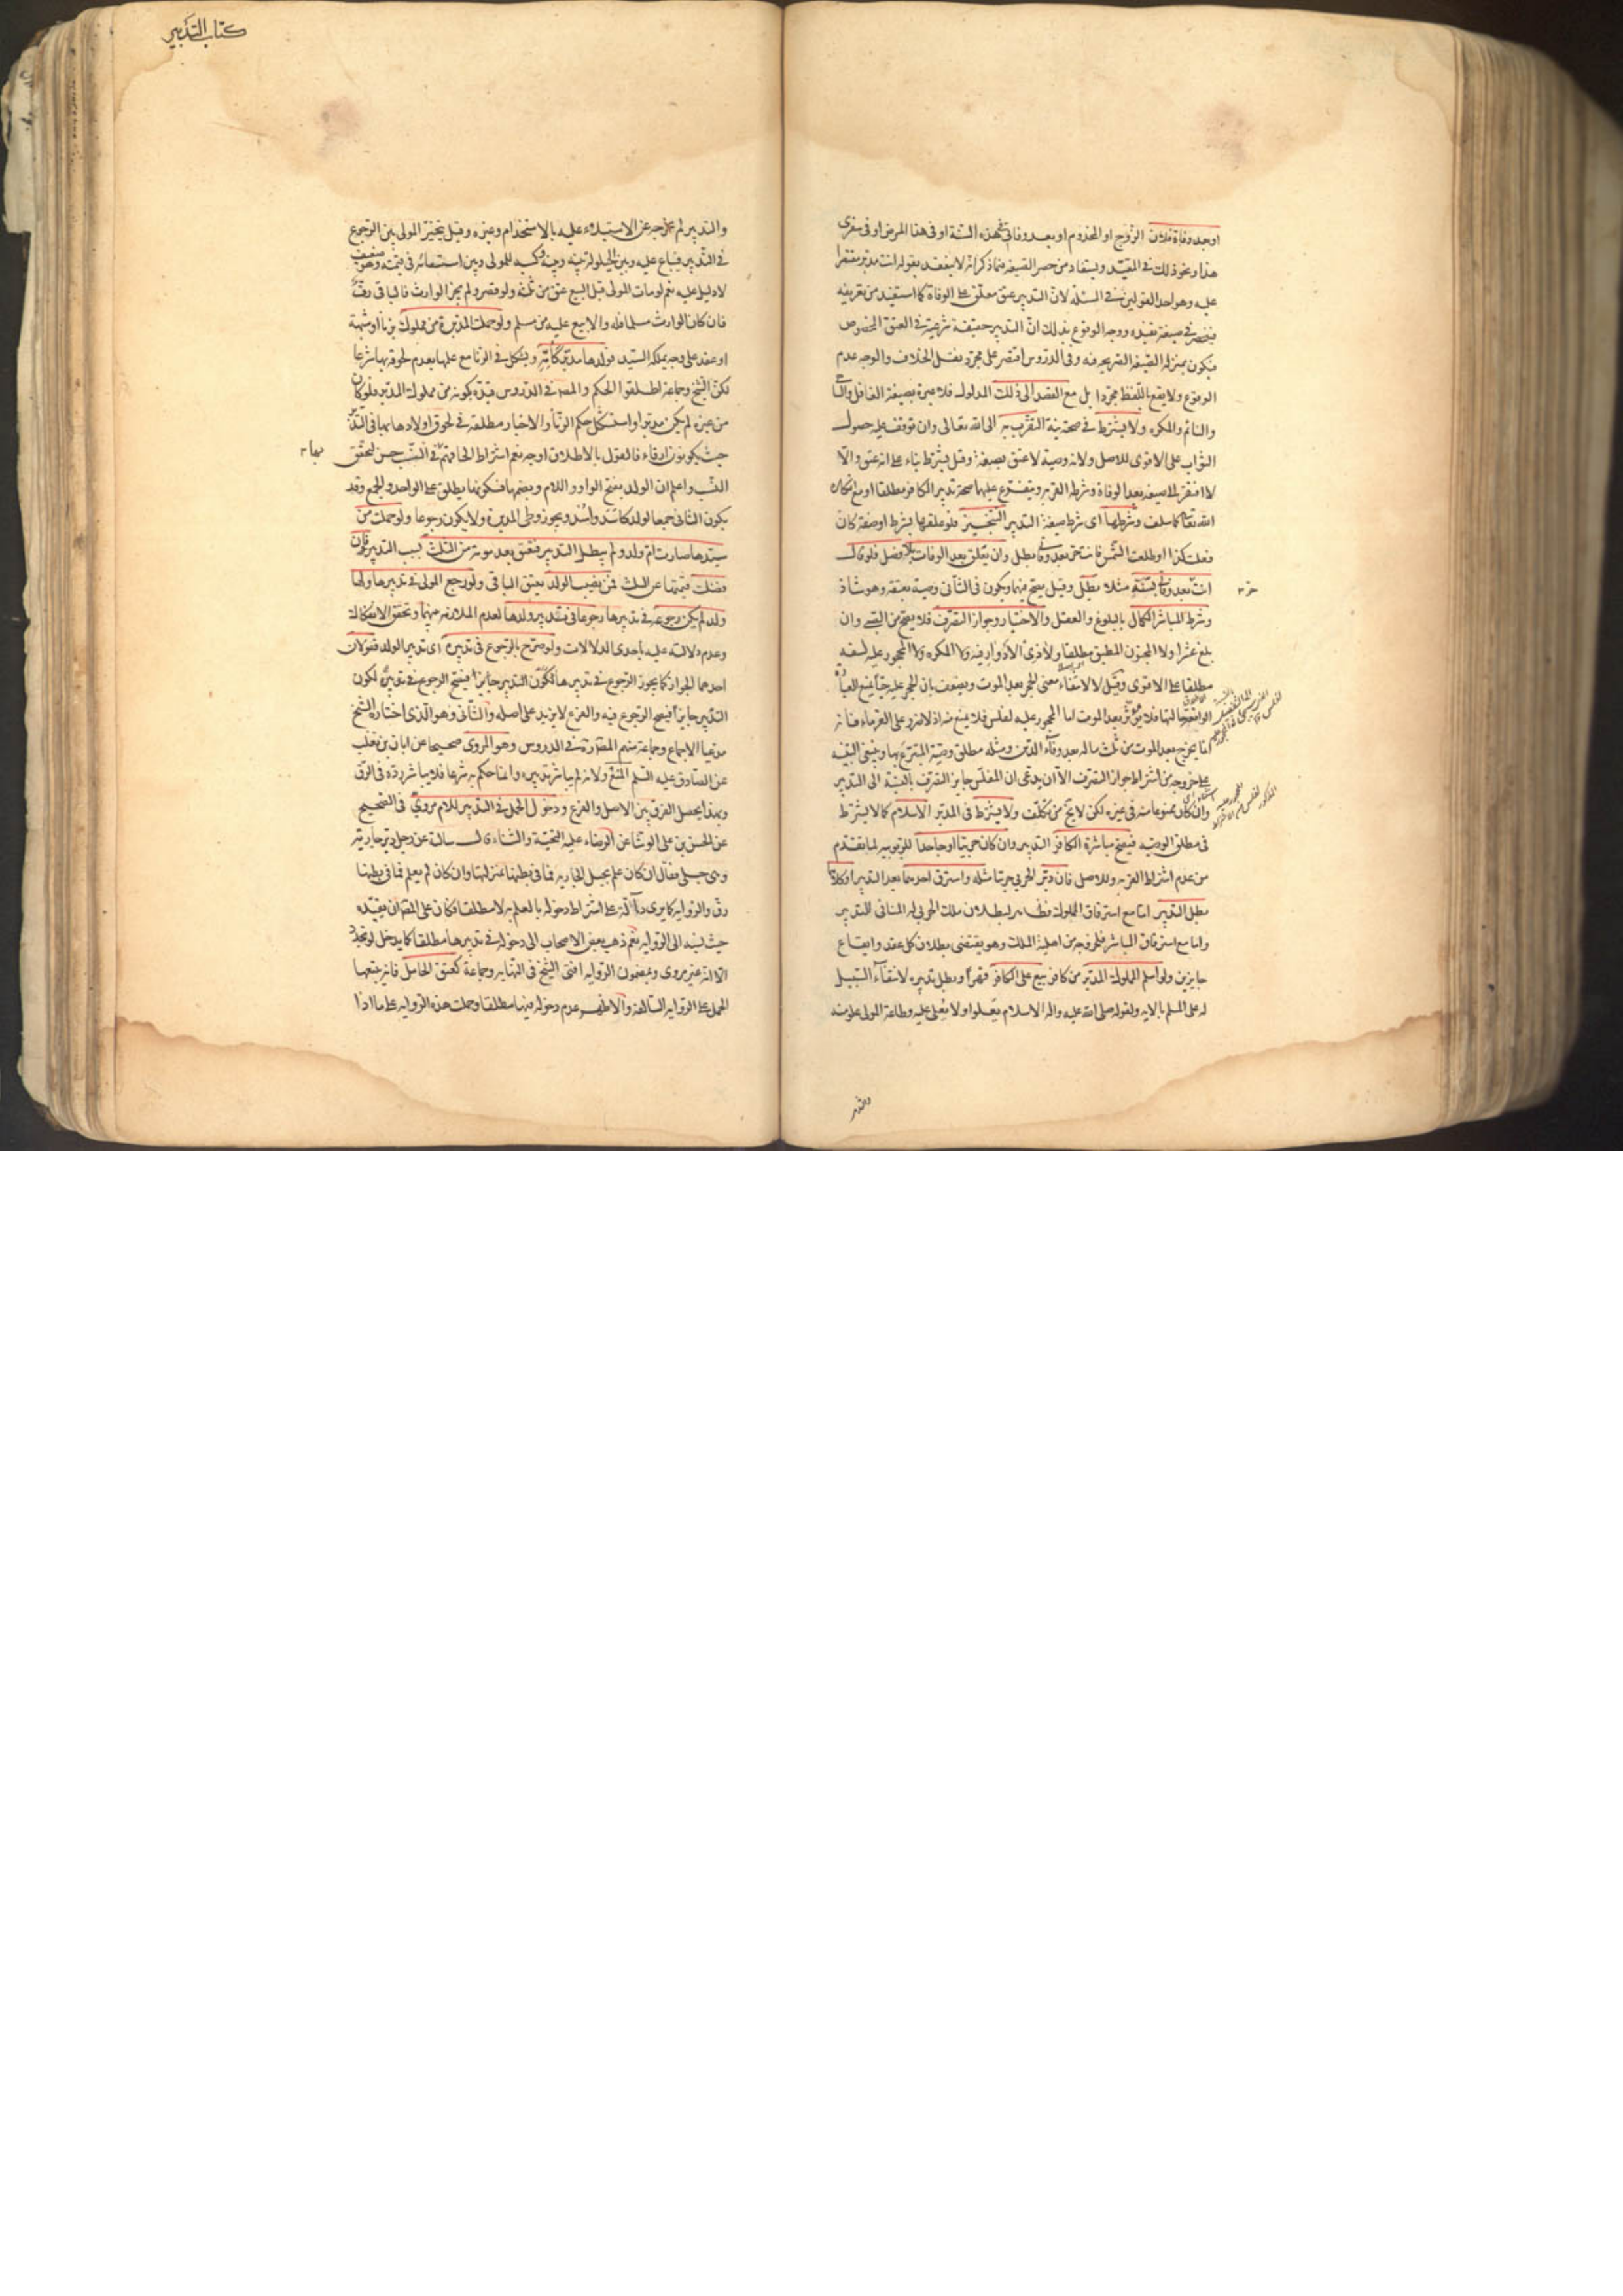 او بعد وفاة فلان الزوج او المخدوم او بعد وفاتي في هذه السنة او في هذا المرض او في سفري
هذا ونحو ذلك في المقيد ويستفاد من حصر الصيغة فيما ذكر انه لا ينعقد بقوله انت مدبر مقتصرا
عليه وهو احد القولين في المسئلة لان التدبير عتق معلق على الوفاة كما استفيد من تعريفه
فينحصر في صيغة تفيده ووجه الوقوع بذلك ان التدبير حقيقة شرعية في العتق المخصوص
فيكون بمنزلة الصيغة الصريحة فيه وفي الدروس اقتصر على مجرد نقل الخلاف والوجه عدم
الوقوع ولا يقع باللفظ مجردا بل مع القصد الى ذلك المدلول فلا عبرة بصيغة الغافل والساهي
والنائم والمكره ولا يشترط في صحته نية التقرب به الى الله تعالى وان توقف عليه حصول
الثواب على الاقوى للاصل ولانه وصية لا عتق بصيغة وقيل يشترط بناء على انه عتق والا
لافتقر الى صيغة بعد الوفاة وشرطه القربة ويتفرع عليها صحة تدبير الكافر مطلقا او مع انكاره
الله تعالى كما سلف وشرطها اي شرط صيغة التدبير التنجيز فلو علقها بشرط او صفة كان
فعلت كذا او طلعت الشمس فانت حر بعد وفاتي بطل وان يعلق بعد الوفات بلا فصل فلو قال
انت حر بعد وفاتي بسنة مثلا بطل وقيل يصح فيهما ويكون في الثاني وصية بعتقه وهو شاذ
وشرط المباشر الكمال بالبلوغ والعقل والاختيار وجواز التصرف فلا يصح من الصبي وان
بلغ عشرا ولا المجنون المطبق مطلقا ولا ذي الادوار فيه ولا المكره ولا المحجور عليه لسفه
مطلقا على الاقوى وقيل لا لانتفاء معنى الحجر بعد الموت ويضعف بان الحجر عليه حيا يمنع العبارة
الواقعة حالتها فلا يؤثر بعد الموت اما المحجور عليه لفلس فلا يمنع منه اذ لا ضرر على الغرماء فانه
انما يخرج بعد الموت من ثلث ماله بعد وفاء الدين ومثله مطلق وصية المتبرع بها وينبغي التنبيه
على خروجه من اشتراط جواز التصرف الا ان يدعى ان المفلس جايز التصرف بالنسبة الى التدبير
وان كان ممنوعا منه في غيره لكن لا يخ من تكلف ولا يشترط في المدبر الاسلام كما لا يشترط
في مطلق الوصية فيصح مباشرة الكافر التدبير وان كان حربيا او جاحدا للربوبية لما تقدم
من عدم اشتراط القربة وللاصل فان دبر الحربي حربيا مثله واسترق احدهما بعد التدبير او كلاهما
بطل التدبير اما مع استرقاق المملوك فظاهر لبطلان ملك الحربي له المنافي للتدبير
واما مع استرقاق المباشر فلخروجه من اهلية الملك وهو يقتضي بطلان كل عقد وايقاع
جايزين ولو اسلم المملوك المدبر من كافر بيع على الكافر قهرا وبطل تدبيره لانتفاء السبيل
له على المسلم بالاية ولقوله صلى الله عليه واله الاسلام يعلوا ولا يعلى عليه وطاعة المولى علو منه
كتاب التدبير
والتدبير لم يخرجه عن الاستيلاء عليه بالاستخدام وغيره وقيل يتخير المولى بين الرجوع
في التدبير فيباع عليه وبين الحيلولة بينه وبينه وكسبه للمولى وبين استسعائه في قيمته وهو ضعيف
لا دليل عليه نعم لو مات المولى قبل البيع عتق من ثلثه ولو قصر ولم يجز الوارث فالباقي رق
فان كان الوارث مسلما فله والا بيع عليه من مسلم ولو حملت المدبرة من مملوك بزنا او شبهة
او عقد على وجه يملكه السيد فولدها مدبر كامه ويشكل في الزنا مع علمها بعدم لحوقه بها شرعا
لكن الشيخ وجماعة اطلقوا الحكم والمصنف في الدروس قيده بكونه من مملوك المدبر فلو كان
من غيره لم يكن مدبرا واستشكل حكم الزنا والاخبار مطلقة في لحوق اولادها بها في التدبير
حيث يكونون ارقاء فالقول بالاطلاق اوجه نعم اشتراط الحاقهم في النسب حسن لتحقق
النسب واعلم ان الولد بفتح الواو واللام وبضمها فسكونها يطلق على الواحد والجمع وقد
يكون الثاني جمعا لولد كاسد واسد ويجوز وطي المدبرة ولا يكون رجوعا ولو حملت من
سيدها صارت ام ولد ولم يبطل التدبير فتعتق بعد موته من الثلث بسبب التدبير فان
فضلت قيمتها عن الثلث فمن نصيب الولد يعتق الباقي ولو رجع المولى في تدبيرها ولها
ولد لم يكن رجوعه في تدبيرها رجوعا في تدبير ولدها لعدم الملازمة بينهما وتحقق الانفكاك
وعدم دلالته عليه باحدى الدلالات ولو صرح بالرجوع في تدبيره اي تدبير الولد فقولان
احدهما الجواز كما يجوز الرجوع في تدبيرها لكون التدبير جايزا فيصح الرجوع في تدبيره لكون
التدبير جايزا فيصح الرجوع فيه والفرع لا يزيد على اصله والثاني وهو الذي اختاره الشيخ
مدعيا الاجماع وجماعة منهم المصنف في الدروس وهو المروي صحيحا عن ابان بن تغلب
عن الصادق عليه السلم المنع ولانه لم يباشر تدبيره وانما حكم به شرعا فلا يباشر رده في الرق
وبهذا يحصل الفرق بين الاصل والفرع ودخول الحمل في التدبير للام مروي في الصحيح
عن الحسن بن علي الوشا عن الرضاء عليه التحية والثناء قال سالت عن رجل دبر جاريته
وهي حبلى فقال ان كان علم بحبل الجارية فما في بطنها بمنزلتها وان كان لم يعلم فما في بطنها
رق والرواية كما يرى دالة على اشتراط دخوله بالعلم به لا مطلقا فكان على المصنف ان يقيده
حيث نسبه الى الرواية نعم ذهب بعض الاصحاب الى دخوله في تدبيرها مطلقا كما يدخل لو تجدد
الا انه غير مروي وبمضمون الرواية افتى الشيخ في النهاية وجماعة كعتق الحامل فانه يتبعها
الحمل على الرواية السالفة والاظهر عدم دخوله فيهما مطلقا وحملت هذه الرواية على ما اذا